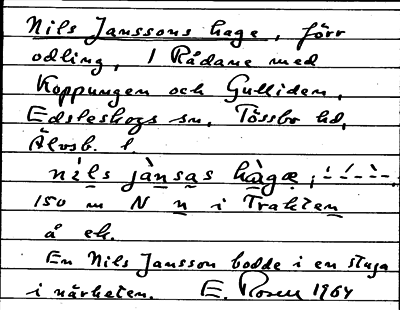 Nils Janssons hage, förr
odling, I Rådane med
Koppungen och Gulliden,
Edsleskogs sn. Tössbo hd,
Älvsb. l.
nìls jànsas hàgæ,
150 m N n i Trakten
å ek.
En Nils Jansson bodde i en stuga
i närheten. E. Rosen 1964